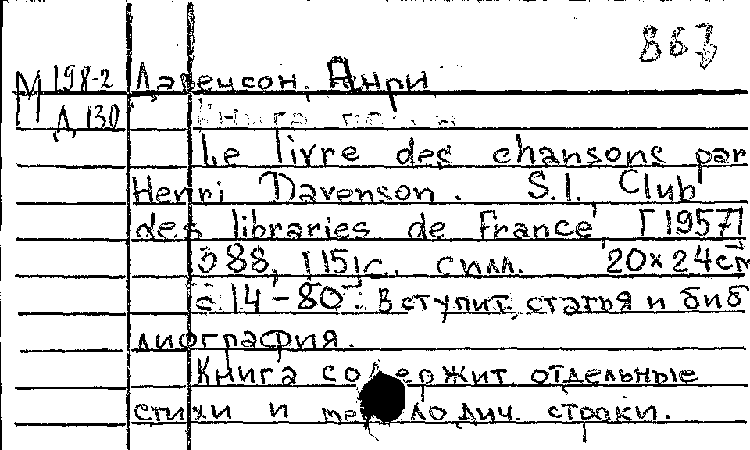 867
М 198-2 Давенсон, Анри
Д 130 Книга песен
Le livre des chansons par
Henri Davenson. S.l., Club
des libraries de France, [1957]
588, [15]с. с илл. 20×24см
с. 14-80: Вступит. статья и биб
лиография.
Книга содержит отдельные
стихи и мелодич. строки.